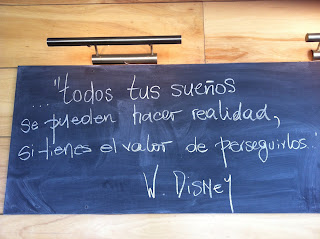 ..."todos tus sueños
se pueden hacer realidad,
si tienes el valor de perseguirlos..."
W. DISNEY